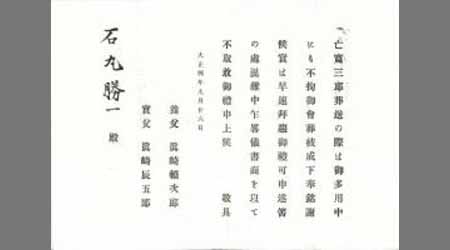 亡寛三郎葬送の際は御多用中
にも不拘御會葬被成下奉銘謝
候實は早速拜趨御禮可申述筈
の處混雜中乍畧儀書面を以て
不取敢御禮申上候 敬具
大正四年九月廿六日
養父 眞崎頼次郎
實父 眞崎辰五郎
石丸勝一殿